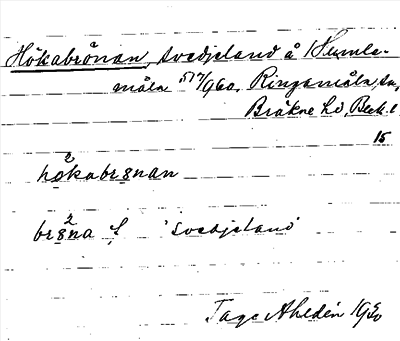 Hökabrånan, svedjeland å Humle-
måla 517/960, Ringamåla sn,
Bräkne hd, Blek. l.
15
hökabrɷnan
2
brɷna f. 'svedjeland'
2
Tage Ahldén 1950